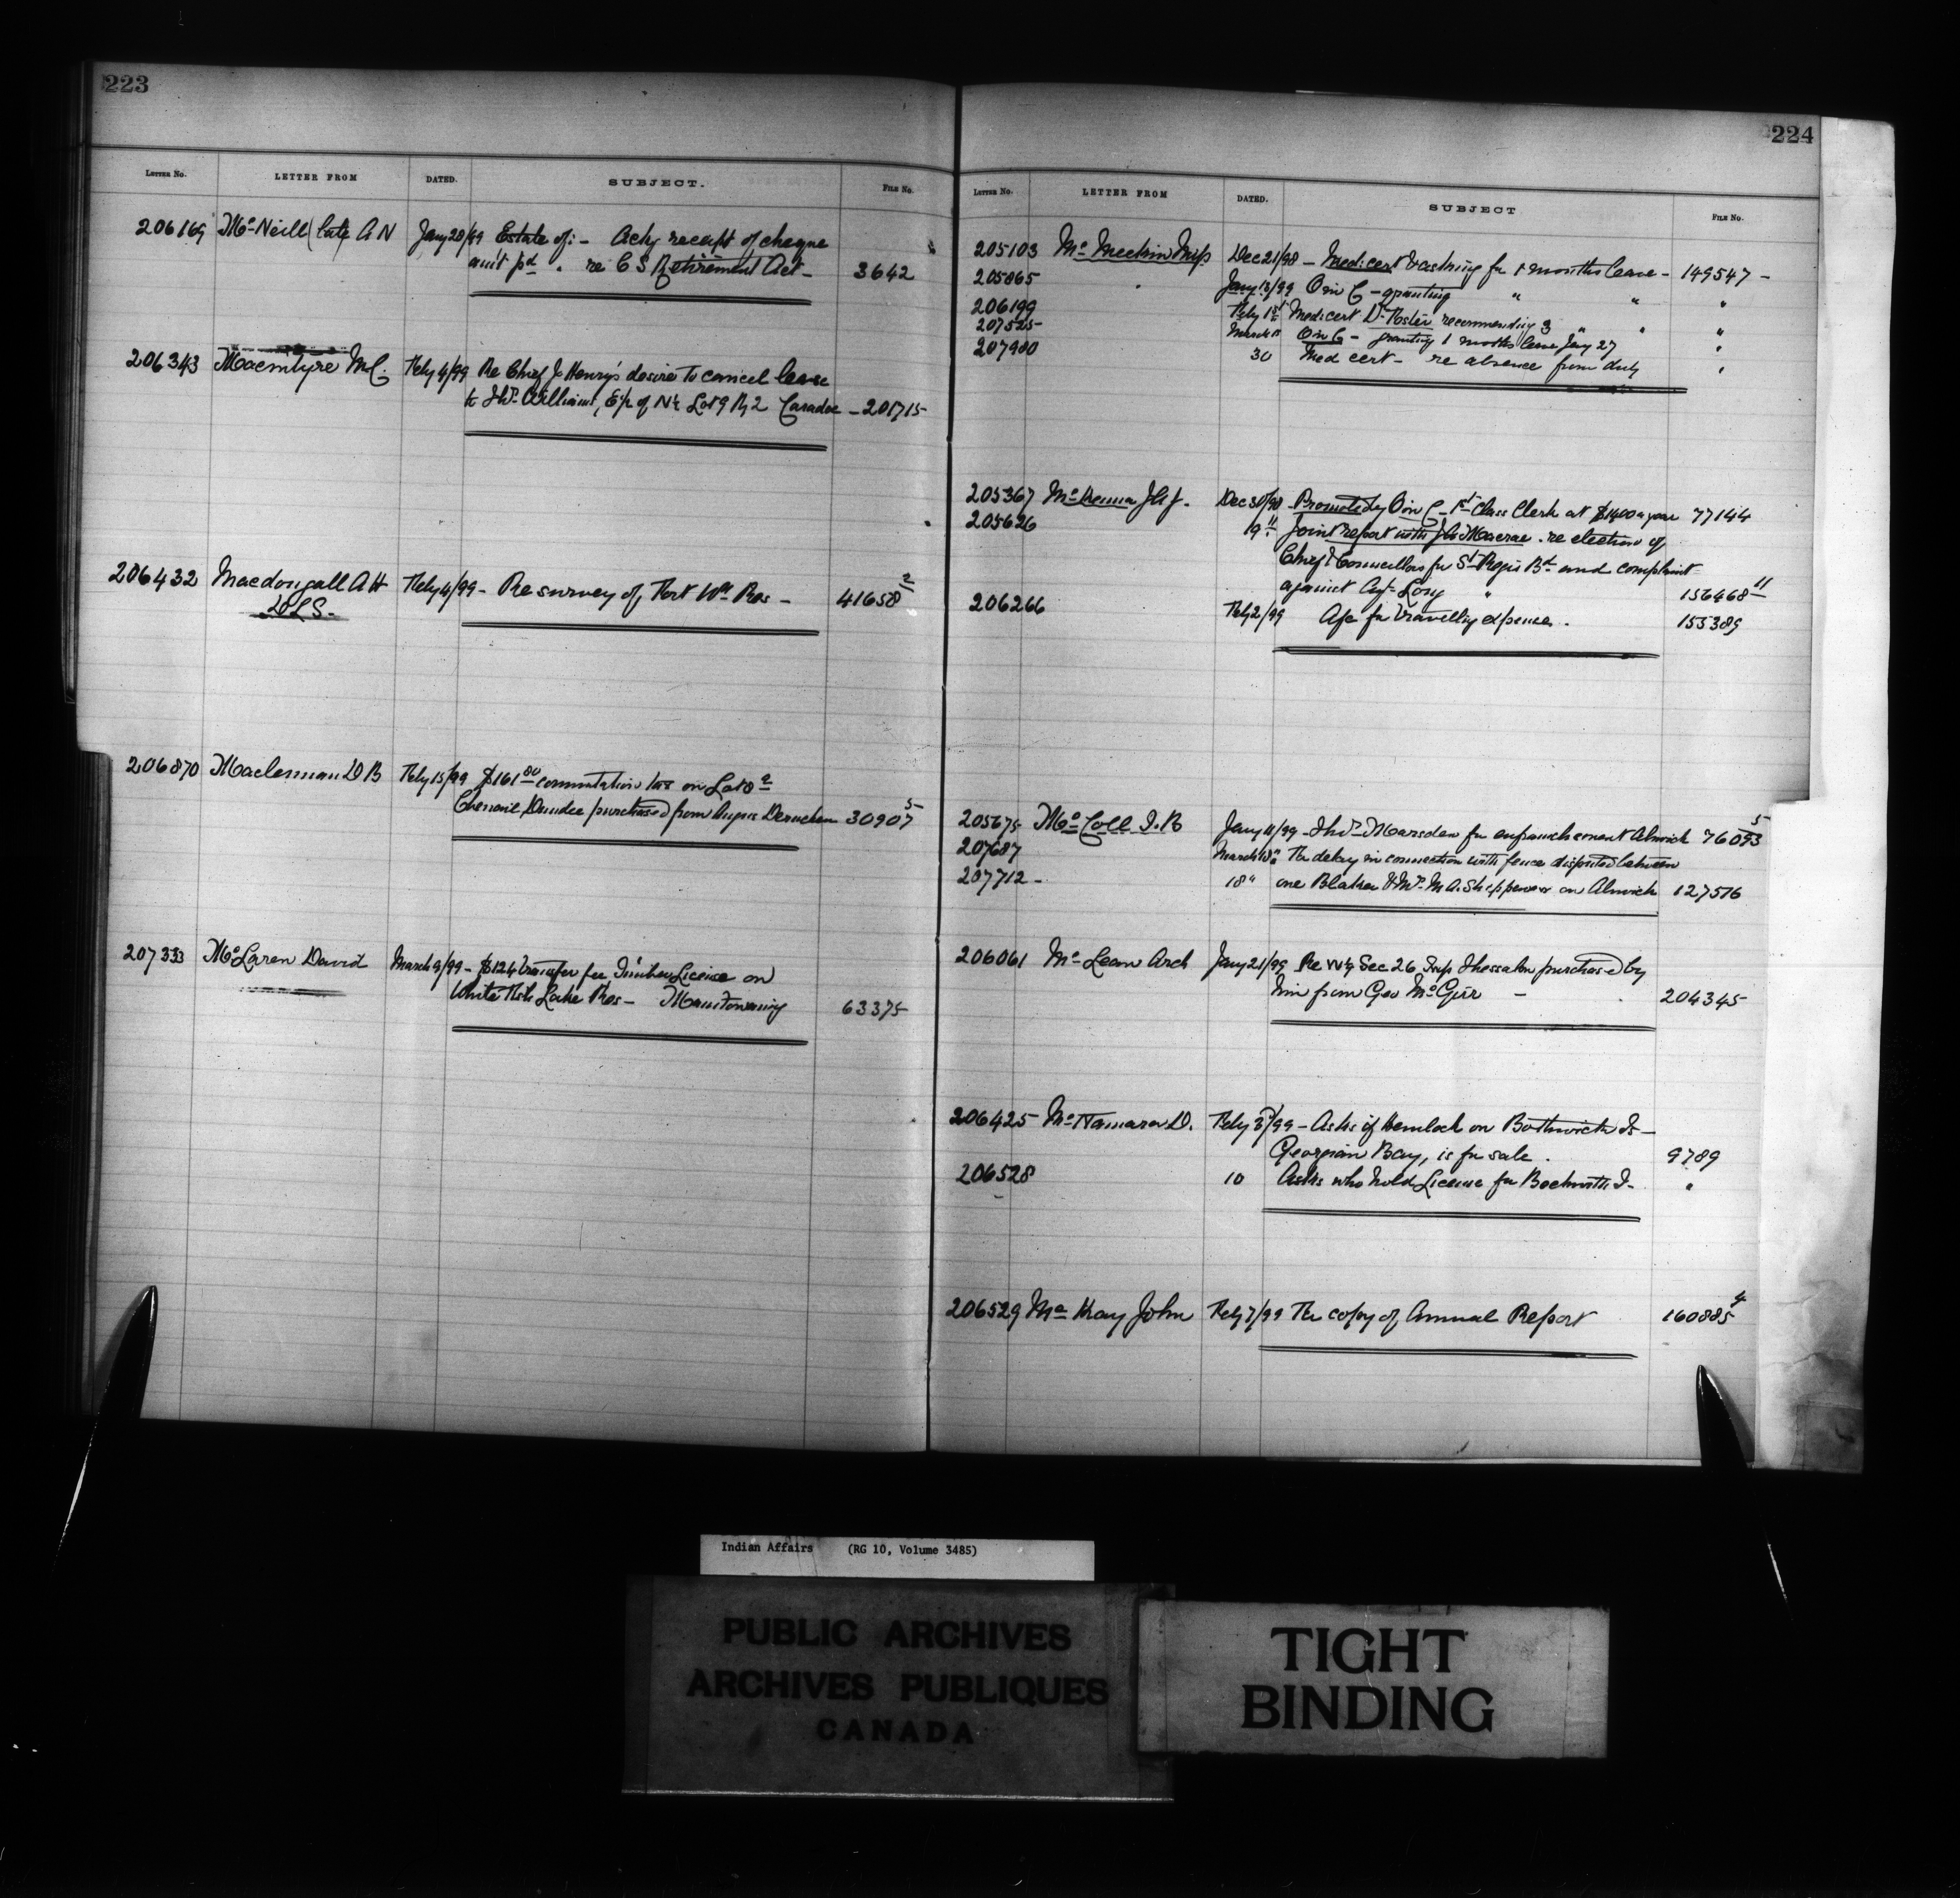 223
LETTER NO. LETTER FROM DATED. SUBJECT. FILE No.
206169 McNeill (late A N Jany 28/99 Estate of:- Ackg receipt of cheque
amt pd. re C S Retirement Act - 3642
206343 Macintyre M C. Feby 4/99 Re Chief Jo Henry's desire to cancel lease
to Thos Williams, E½ of N½ Lot 9 R, 2 Caradoc - 201715
206432 Macdougall A H Feby 4/99 - Re survey of Fort Wm Res - 41658 2
DLS.
206870 Maclennan D B Feby 15/99 $161 80 commutation tax on Lot 8 2
Dundee purchased from Angus 30907 5
207333 McLaren David March 9/99 - $124 transfer fee Timber License on
White Fish Lake Res - Manitowaning 63375
224
LETTER NO. LETTER FROM DATED. SUBJECT FILE NO.
205103 Mc Meekin Miss Dec 21/98 - Medi: cert & asking for 1 months leave - 149547 -
205865 Jany 13/99 O in C - granting " " "
206199 Feby 1st Medi: cert Dr Foster recommending 3 " " "
207525 March O in C - granting 1 months leave Jany 27 "
207980 30 Med cert - re absence from duty "
205367 McKenna J A J. Dec 30/98 Promoted by O in C - 1st Class Clerk at $1400 a year 77144
205626 Joint report with J A Macrae . re election of
Chief & Councillors for St Regis Bd and complaint
against Agt Long " 156468 11
206266 Feby 2/99 A/c for travelling expenses . 155389
205675 McColl J. B Jany 11/99 - Thos Marsden for enfranchisement Alnwick 76093 5
207687 March Re delay in connection with fence disputed between
207712 - 18 " one Blaker & Mrs M A. Shippeway on Alnwick 127516
206061 McLean Arch Jany 21/99 Re W½ Sec 26 Twp Thessalon purchased by
him from Geo McGirr - 204345
206425 McNamara D. Feby 3/99 - Asks if Hemlock on Bothwick Is -
Georgian Bay, is for sale . 9789
206528 10 Asks who hold License for Beckwith I. "
206529 McKay John Feby 7/99 Re copy of Annual Report 160885 4
Indian Affairs (RG 10, Volume 3485)
PUBLIC ARCHIVES
ARCHIVES PUBLIQUES
CANADA
TIGHT
BINDING